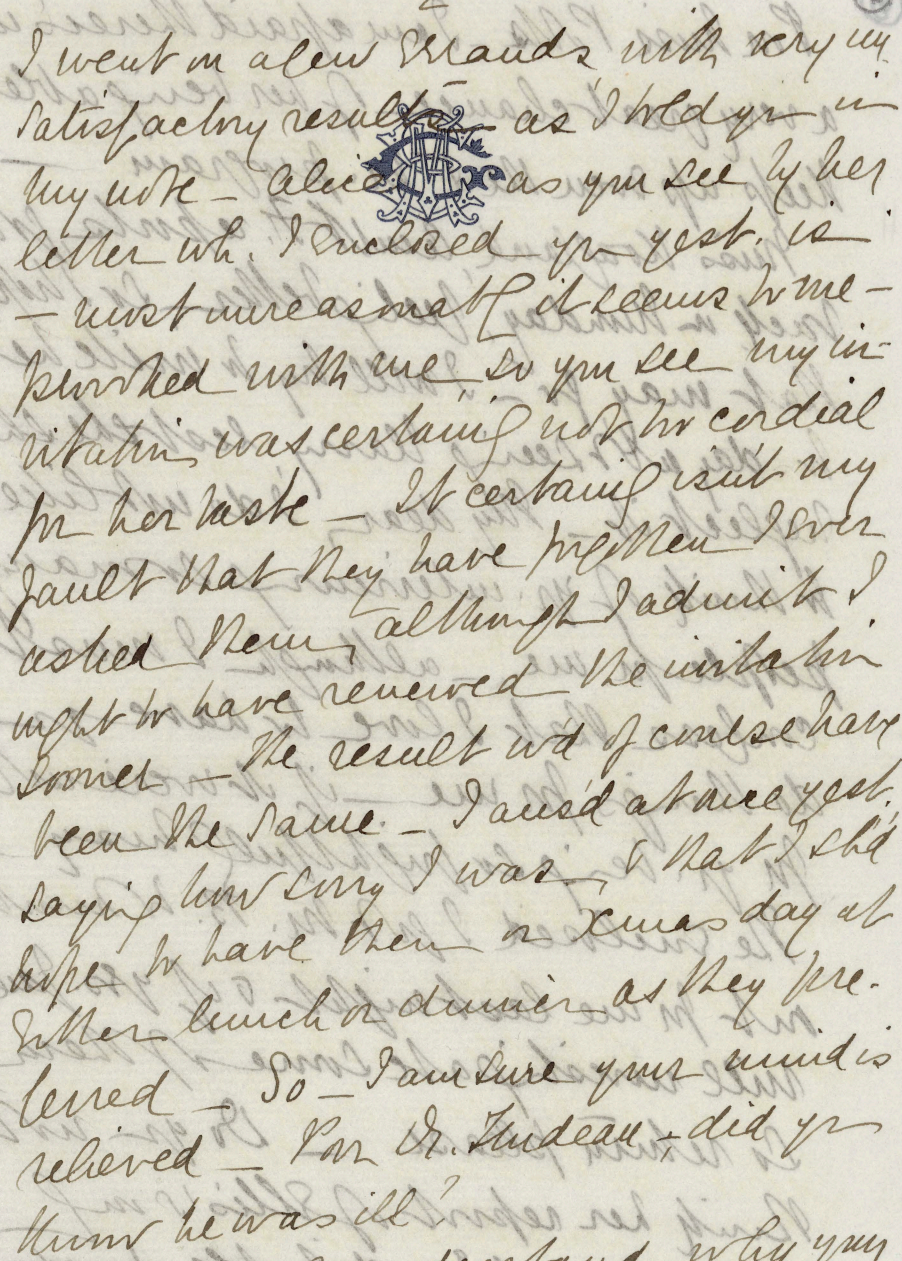 2
I went on a few errands with very un-
satisfactory results as I told yu in
my note - Alice as you see by her
letter wh. I enclosed yu yest. is
- most unreasonably it seems to me -
provoked with me, so you see my in-
vitation was certainly not too cordial
for her taste - It certainly isn't my
fault that they have forgotten I ever
asked them, although I admit I
ought to have renewed the invitation
sooner - the result w'd of course have
been the same. - I ans'd at once yest.
saying how sorry I was, & that I sh'd
hope to have them on Xmas day at
either lunch or dinner as they pre-
ferred - So - I am sure your mind is
relieved - Poor Dr. Trudeau - did yu
know he was ill?
why you